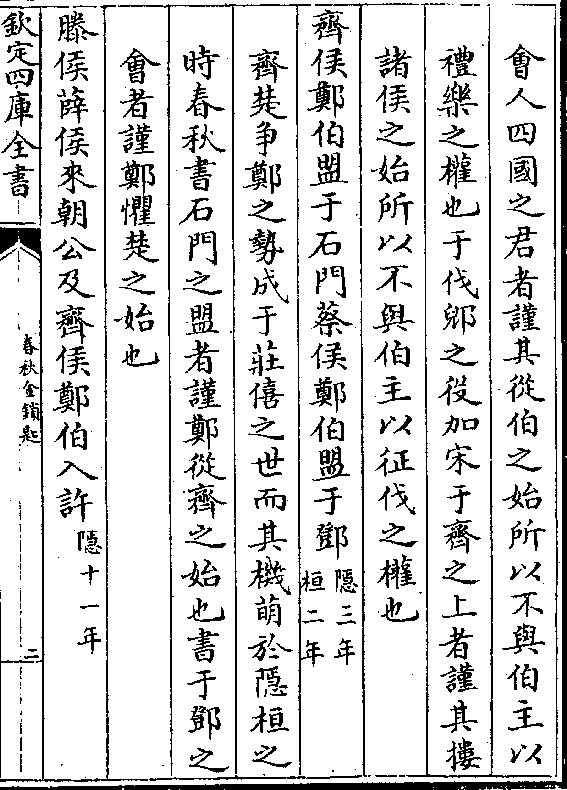 會人四國之君者謹其從伯之始所以不與伯主以
禮樂之權也于伐郳之役加宋于齊之上者謹其摟
諸侯之始所以不與伯主以征伐之權也
齊侯鄭伯盟于石門蔡侯鄭伯盟于鄧隱三年桓二年
齊楚争鄭之勢成于莊僖之世而其機萌於隱桓之
時春秋書石門之盟者謹鄭從齊之始也書于鄧之
會者謹鄭懼楚之始也
滕侯薛侯來朝公及齊侯鄭伯入許隱十一年
欽定四庫全書
春秋金鎖匙
二